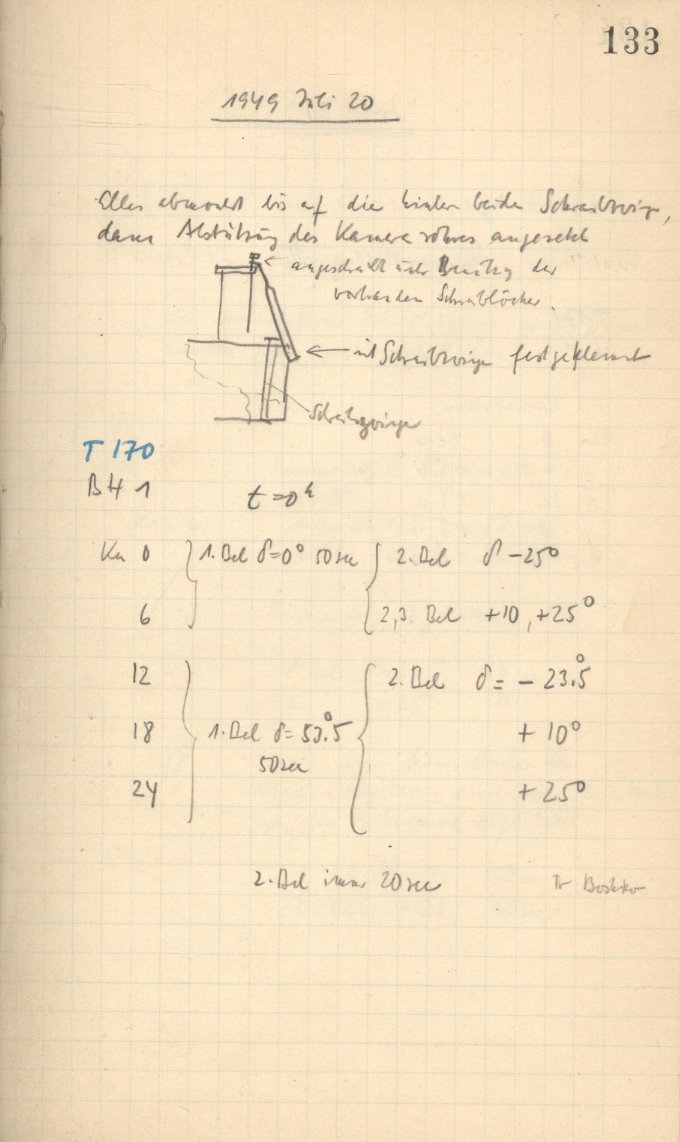 133
1949 Juli 20
Alles abmontiert bis auf die hinteren beiden Schraubzwingen,
dann Abstützung des Kamerarohres angesetzt
angeschraubt unter Benützung der
vorhandenen Schraublöcher.
mit Schraubzwinge festgeklemmt
Schraubzwingen
T 170
BH 1 t = 0h
Ku 0 1. Bel δ=0° 50sec 2. Bel δ -25°
6 2,3. Bel +10, +25°
12 2. Bel δ = -23°.5
18 1. Bel δ = 53°.5 +10°
50sec
24 +25°
2. Bel immer 20sec